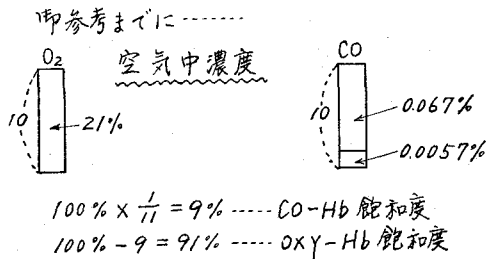 御参考までに………
O₂
空気中濃度
CO
10
21%
10
0.067%
0.0057%
100% × 1/11 = 9% …… CO-Hb 飽和度
100% - 9 = 91% …… OXY-Hb 飽和度